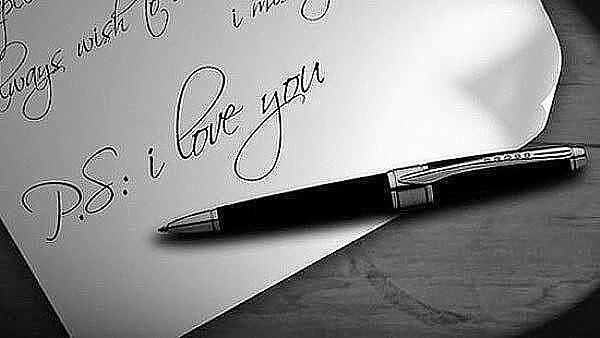 always wish to
i
P.S: i love you